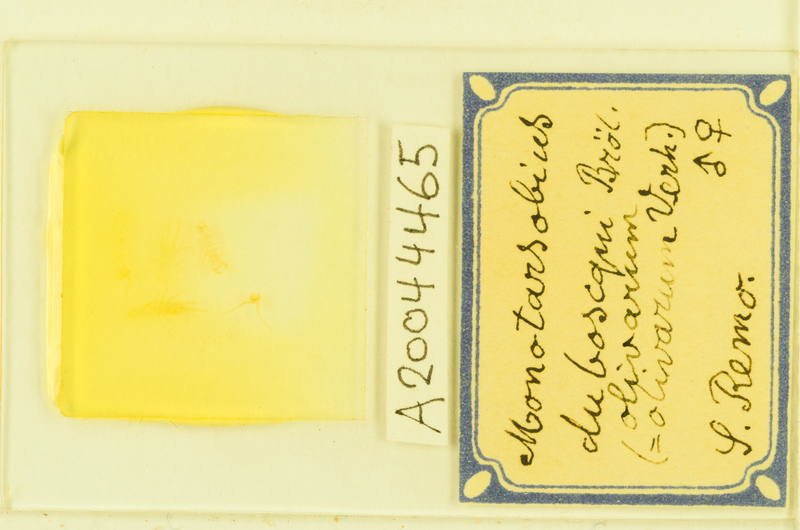 A20044465
Monotarsobius
duboscqui Bröl.
(olivarum
=olivarum Verh.)
♂♀
S. Remo.